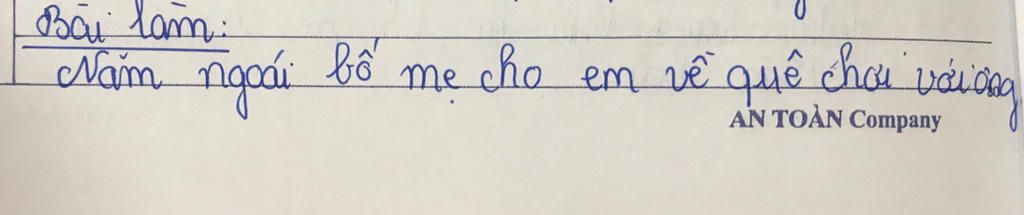 Bài làm:
Năm ngoái bố mẹ cho em về quê chơi với ông
AN TOÀN Company